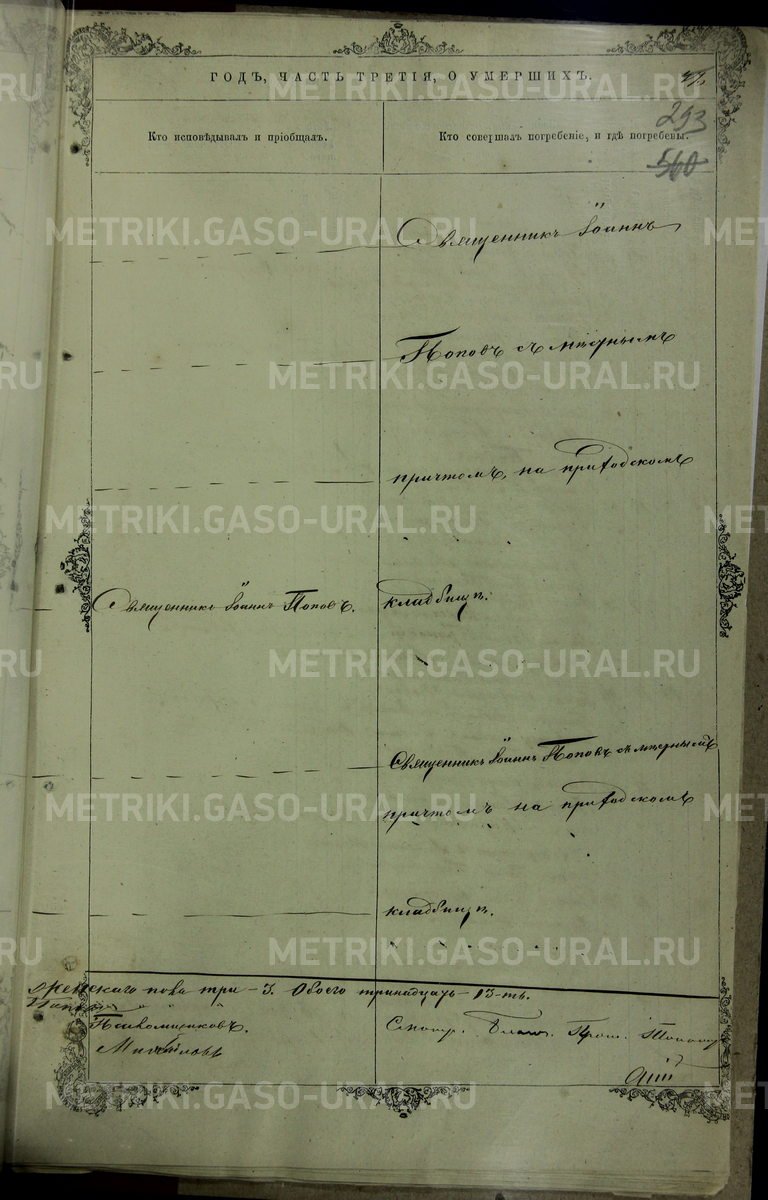 ГОДЪ, ЧАСТЬ ТРЕТІЯ, О УМЕРШИХЪ.
293
560
Кто исповѣдывалъ и пріобщалъ.
Кто совершалъ погребеніе, и гдѣ погребены.
Священникъ Іоаннъ
Поповъ съ мѣрнымъ
причтомъ, на приходскомъ
Священникъ Іоаннъ Поповъ.
кладбищѣ.
Священникъ Іоаннъ Поповъ съ
причтомъ на приходскомъ
кладбищѣ.
Женскаго пола три – 3. Обоего тринадцать – 13-ть.
Поповъ
Псаломщиковъ.
Смотр. Благ. Прот.
METRIKI.GASO-URAL.RU